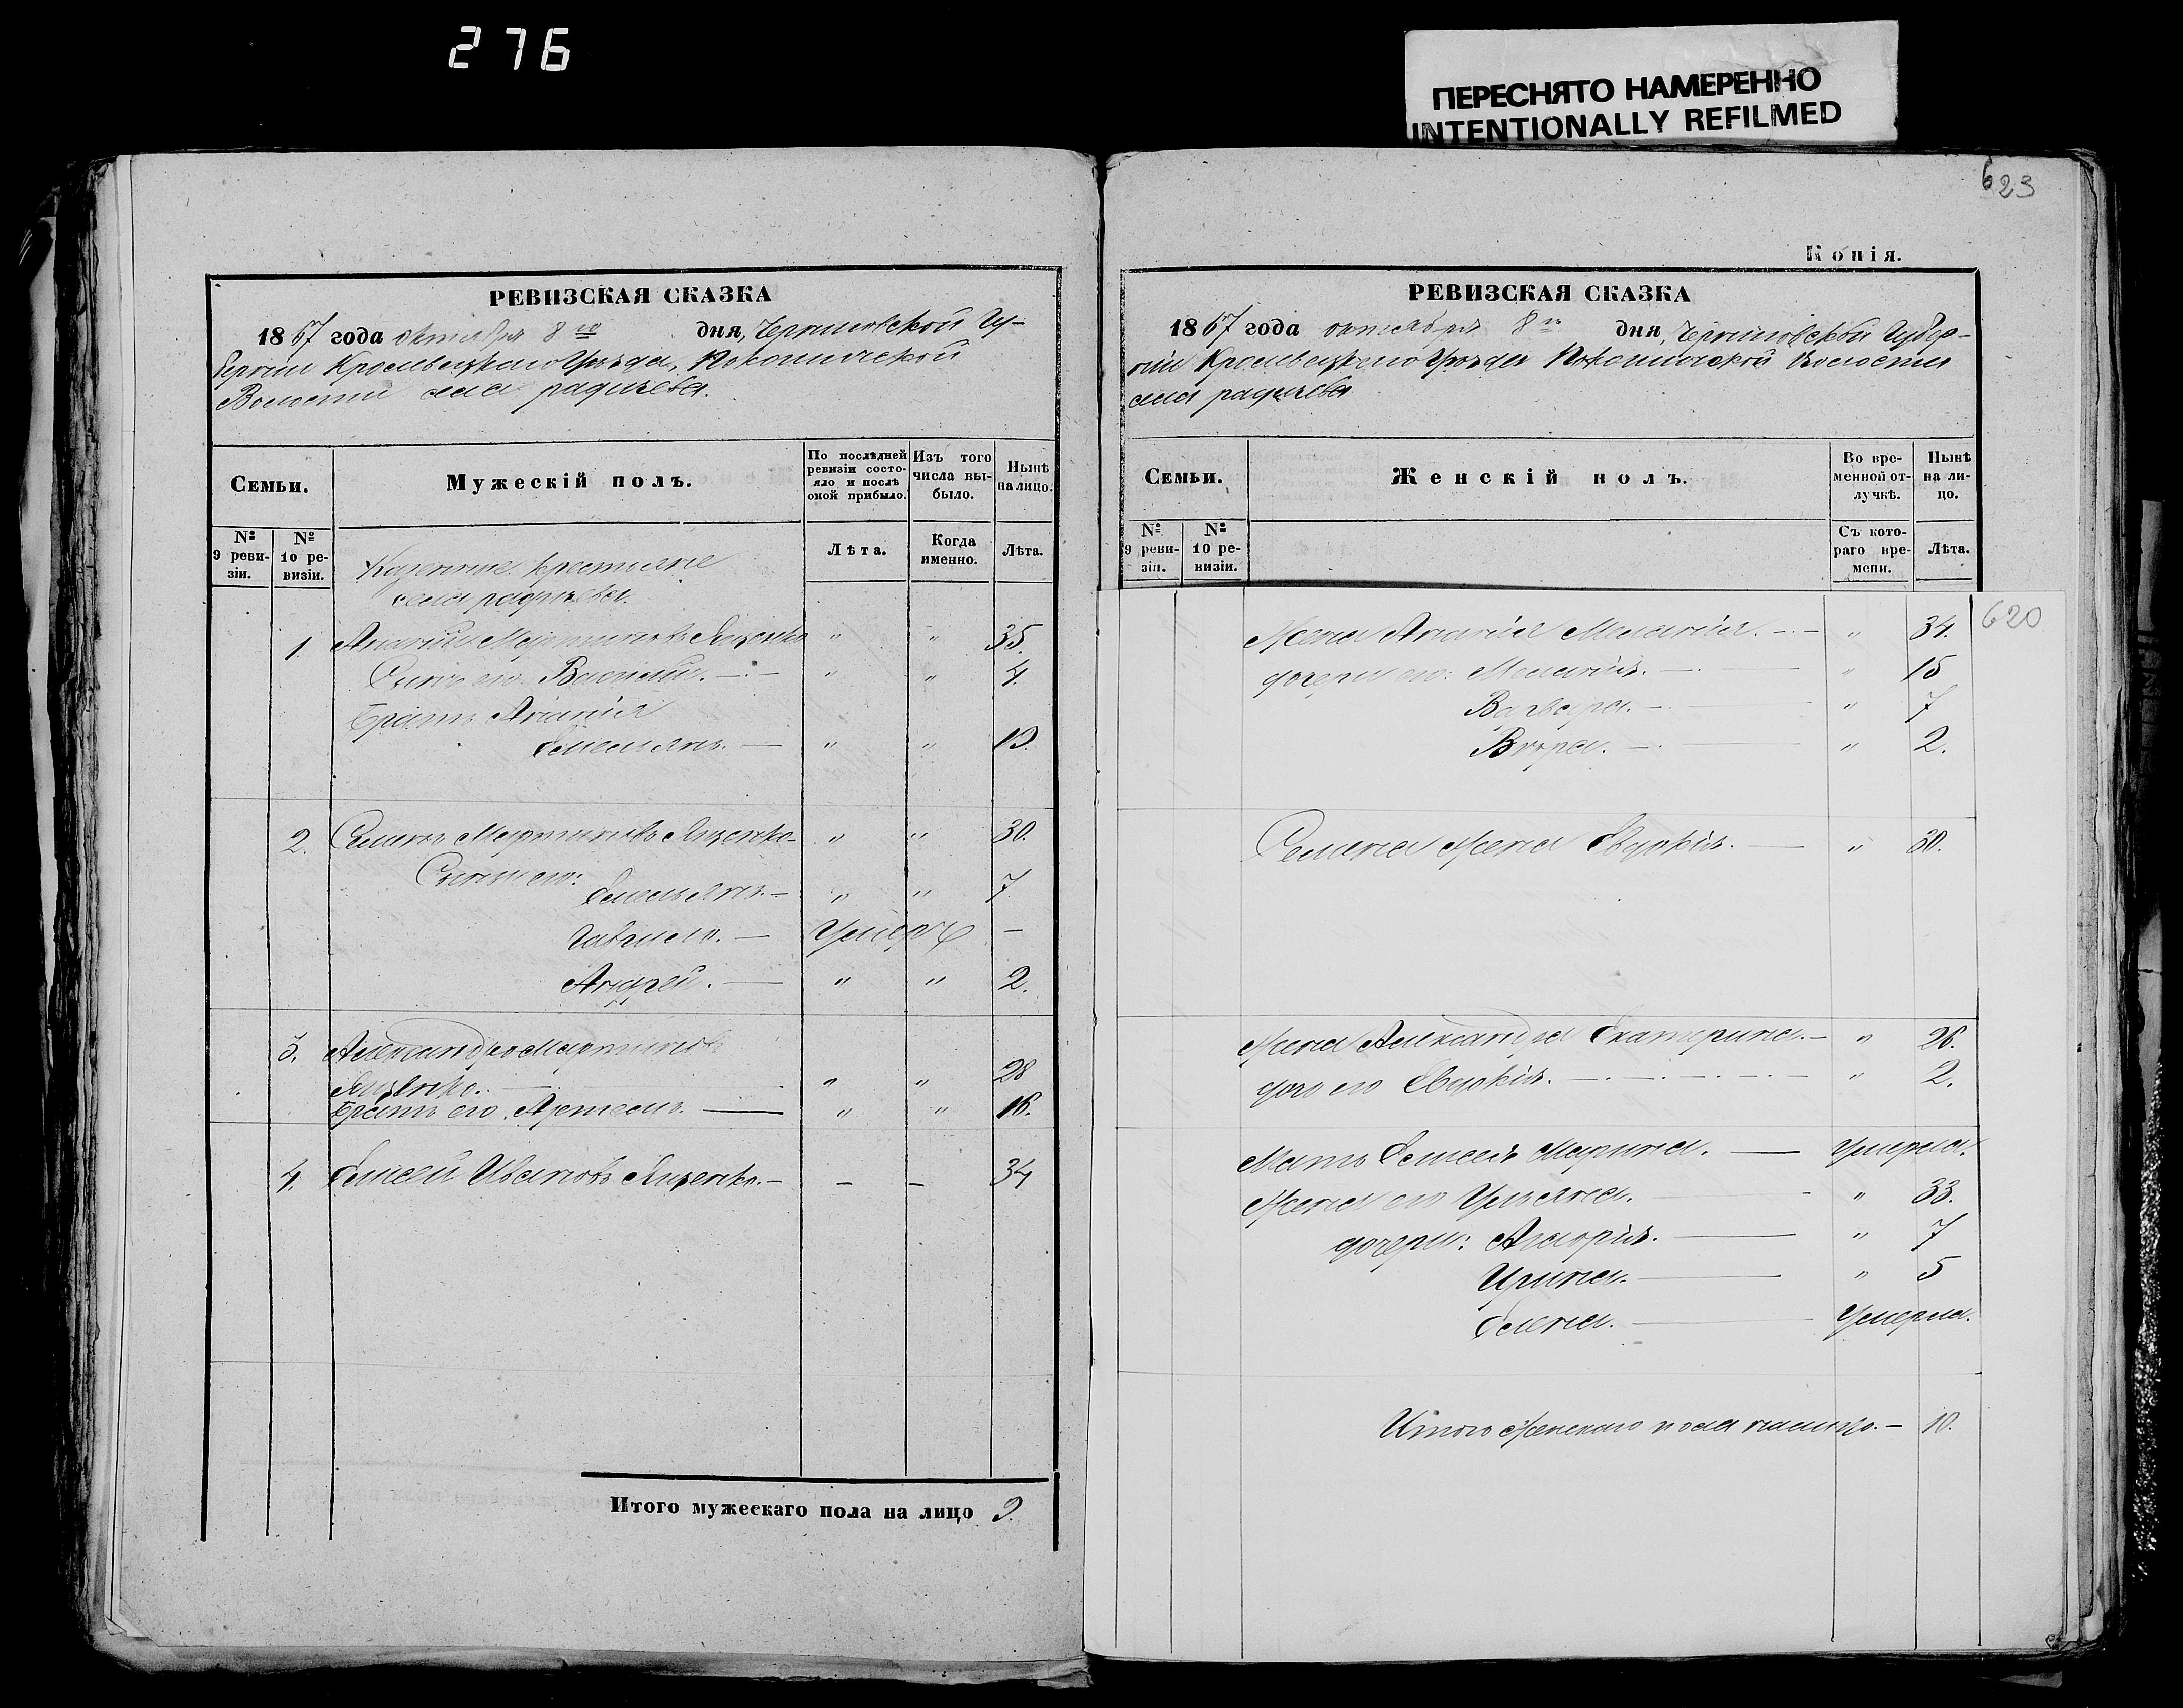 276
ПЕРЕСНЯТО НАМЕРЕННО
INTENTIONALLY REFILMED
РЕВИЗСКАЯ СКАЗКА
1867 года октября 8го дня, Черниговской Гу-
берніи Кролевецкаго Уѣзда, Покошичской
Волости села радичева.
Семьи.
Мужескій полъ.
По послѣдней ревизіи состо-яло и послѣ оной прибыло.
Изъ того числа вы-было.
Нынѣ на лицо.
№ 9 реви-зіи.
№ 10 ре-визіи.
Лѣта.
Когда именно.
Лѣта.
Казенные крестьяне
села радичева.
1. Ананій Мартиновъ Яценко " " 35.
Сынъ его Василій. " " 4.
Братъ Ананія
Емельянъ. — " " 19.
2. Семенъ Мартиновъ Яценко- " " 30.
Сыны его:
Емельянъ. — " " 7.
Гаврило. — Умеръ —
Андрей. — " " 2.
3. Александръ Мартиновъ
Яценко. " " 28
Братъ его Артемъ. — " " 16.
4. Елисей Ивановъ Яценко. — – – 34
Итого мужескаго пола на лицо 9.
623
Копія.
РЕВИЗСКАЯ СКАЗКА
1867 года октября 8го дня, Черниговской Губер-
ніи Кролевецкаго Уѣзда Покошичской Волости
села радичева
Семьи.
Женскій полъ.
Во вре-менной от-лучкѣ.
Нынѣ на ли-цо.
№ 9 реви-зіи.
№ 10 ре-визіи.
Съ кото-раго вре-мени.
Лѣта.
620
Жена Ананія Меланія. — " 34.
дочери его: Меланія. — " 15
Варвара. — " 7
Вѣра. — " 2.
Семена жена Евдокія. — " 30.
Жена Александра Екатерина. — " 26.
дочь его Евдокія. — " 2.
Мать Елисея Марина. — Умерла.
Жена его Ульяна. " 33.
дочери: — " 7
Ирина. — " 5
Елена. — Умерла.
Итого Женскаго пола налицо. — 10.